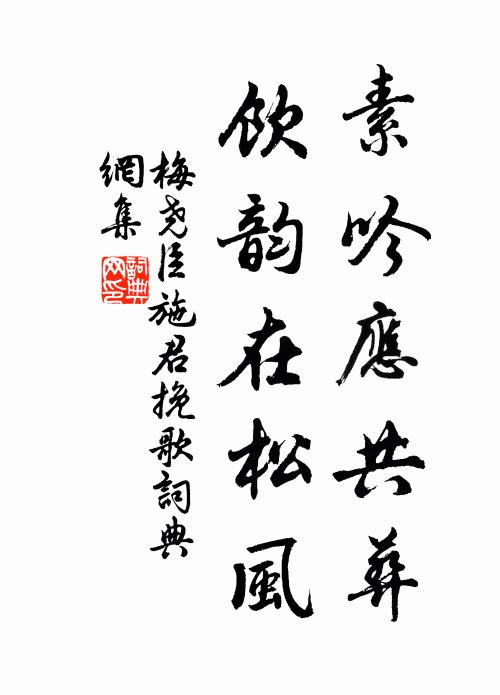 素吟應共葬
飲韵在松風
梅尧臣施君挽歌詞典
網集
詞典
网印